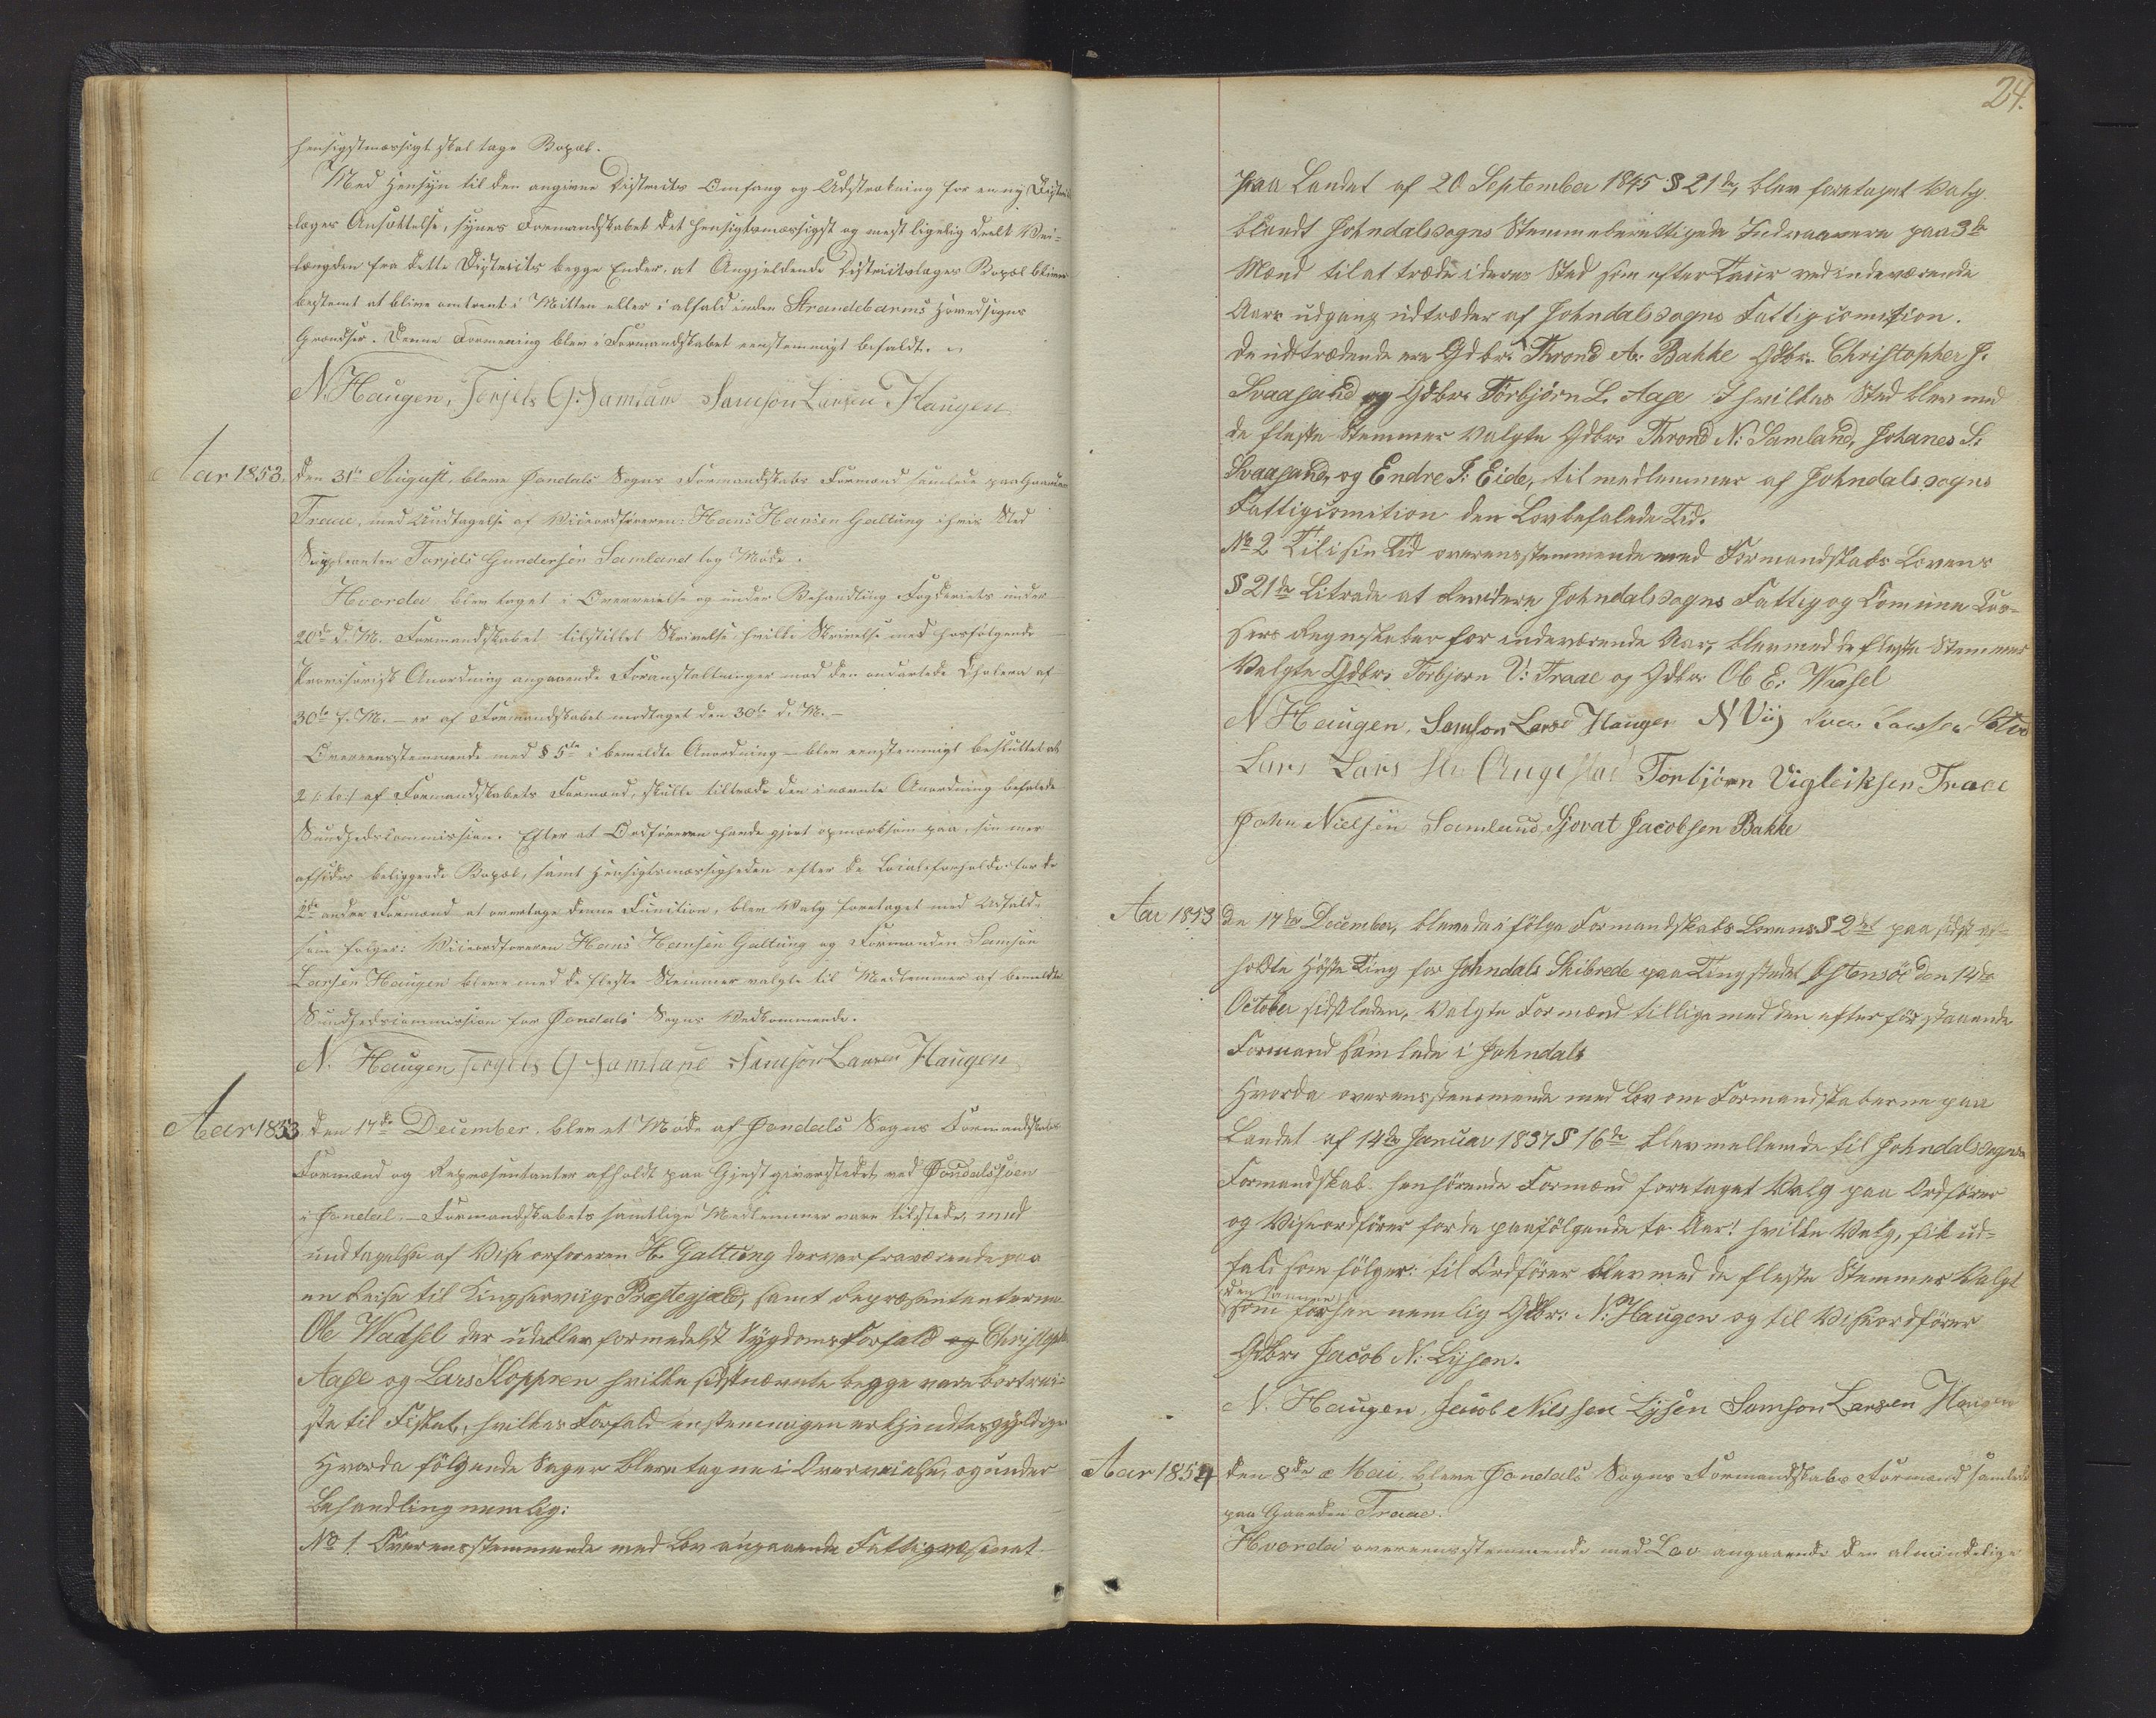 hensigtmæssigt skal tage Bopæl.
Med Hensyn til den angivne Districts Omfang og Udstrækning for en ny Districts
læges Ansættelse, synes Formandskabet det hensigtsmæssigst og mest ligelig deelt Vei-
længden fra dette Districts begge Ender, at Angjeldende Districtslæges Bopæl bliver
bestemt at blive omtrent i Mitten eller i alfald inden Strandebarms Hovedsogns
Grændser. Denne Formening blev i Formandskabet eenstemmigt befaldt.
N. Haugen, Torjels G. Samland Samson Larsen Haugen
Aar 1853. den 31te August, bleve Jondals Sogns Formandskabs Formænd samlede paa Gaarden
Traae, med Undtagelse af Viceordføreren: Hans Hansen Galtung i hvis Sted
Suppleanten Torjels Gundersen Samland tog Møde.
Hvorda blev taget i Overveielse og under Behandling Fogderiets under
20de d. M. Formandskabet tilstillet Skrivelse hvilke Skrivelse med hosfølgende
Provisorisk Anordning angaaende Foranstaltninger mod den ondartede Cholera af
30te f. M. – er af Formandskabet modtaget den 30te d. M. –
Overeensstemmende med § 5te i bemeldte Anordning – blev eenstemmigt besluttet at
2 /: to :/ af Formandskabets Formænd, skulle tiltræde den i nævnte Anordning befalede
Sundhedscommission. Efter at Ordføreren havde gjort opmærksom paa, sin mer
afsides beliggende Bopæl, samt Hensigtsmæssigheden efter de Localeforholde for de
2de andre Formænd at overtage denne Function, blev Valg foretaget med Udfald
som følger: Viceordføreren Hans Hansen Galtung og Formanden Samson
Larsen Haugen bleve med de fleste Stemmer valgte til Medlemmer af bemeldte
Sundhedscommission for Jondals Sogns Vedkommende.
N. Haugen Torgels G Samland Samson Larsen Haugen
Aar 1853 den 17de December blev et Møde af Jondals Sogns Formandskabs
Formænd og Repræsentanter afholdt paa Gjestgiverstedet ved Jondalsøen
i Jondal. – Formandskabets samtlige Medlemmer vare tilstede, med
undtagelse af Vise orføreren H. Galtung der var fraværende paa
en Reise til Kingservigs Præstegjæld, samt Repræsentanterne
Ole Wadsel der udeblev formedelst Sygdoms Forfald og Christopher
Aase og Lars Kloppren hvilke sidstnævnte begge vare bortrei-
ste til Fiskeri, hvilkes Forfald enstemmigen erkjendtes gyldige
Hvorda følgende Sager bleve tagne i Overveielse, og under
Behandling nemlig:
No 1. Overensstemmende med Lov angaaende Fattigvæsenet
24.
paa Landet af 20 September 1845 § 21de, blev foretaget Valg
blandt Johndalssogns Stemmeberettigede Indvaanere paa 3de
Mænd til at træde i deres Sted som efter Tour ved indeværende
Aars udgang udtræder af Johndalssogns Fattigcomision.
de udtrædende ere Gdbr. Thrond A. Bakke Gdbr. Christopher J.
Svaasand og Gdbr. Torbjørn L. Aase I hvilkes Sted blev med
de fleste Stemmer Valgte Gdbr. Thrond N: Samland, Johanes S.
Svaasand, og Endre T: Eide, til medlemmer af Johndals sogns
Fattigcomition den Lovbefalede Tid.
No 2 Til i sin Tid overensstemmende med Formandskabs Lovens
§ 21de Litra de at Revidere Johndalssogns Fattig og Comune Cas-
sers Regnskaber for indeværende Aar, blev med de fleste Stemmer
Valgte Gdbr: Torbjorn V: Traae og Gdbr. Ole E: Wasel
N Haugen. Samson Larse Haugen N Viij
Lars Lars Torbjørn Vigleiksen Traae
John Nielsen Samland, Sjovat Jacobsen Bakke
Aar 1853 de 17de December, bleve de i følge Formandskabs Lovens § 2det paa sidst af-
holdte Høste Ting for Johndals Skibrede paa Tingstedet Østensöe den 14de
October sidstleden, Valgte Formænd tillige med den efter för staaende
Formand samlede i Johndal
Hvorda overensstemmende med Lov om Formandskaberne paa
Landet af 14de Januar 1837 § 16de blev mellem de til Johndalssogns
Formandskab henhørende Formænd foretaget Valg paa Ordfører
og Viseordfører for de paafølgende to Aar! hvilke Valg, fik ud-
fald som følger: til Ordfører blev med de fleste Stemmer Valgt
den samme
som forhen nemlig Gdbr: N. Haugen og til Viseordfører
Gdbr. Jacob N: Lysen.
N. Haugen, Jacob Nilssen Lysen Samson Larsen Haugen
Aar 1854 den 8de Mai, bleve Jondals Sogns Formandskabs Formænd samlede
paa Gaarden Traae.
Hvorda overeensstemmende med Lov angaaende den almindelige